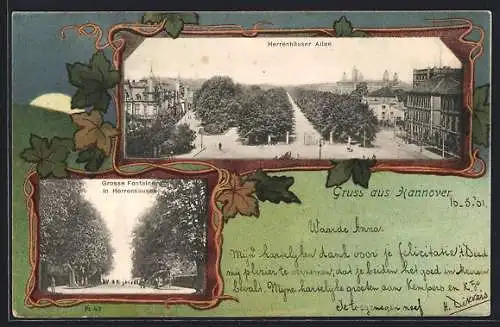 Herrenhäuser Allee
Grosse Fontaine
in Herrenhausen
Gruss aus Hannover
10.5.01
Waarde Anna.
Mijn hartelijken dank voor je felicitatie! 't Deed
mij plezier te vernemen, dat je beiden het goed in
bevalt. Mijne hartelijke groeten aan Kempers en
Je toegenegen neef
H.